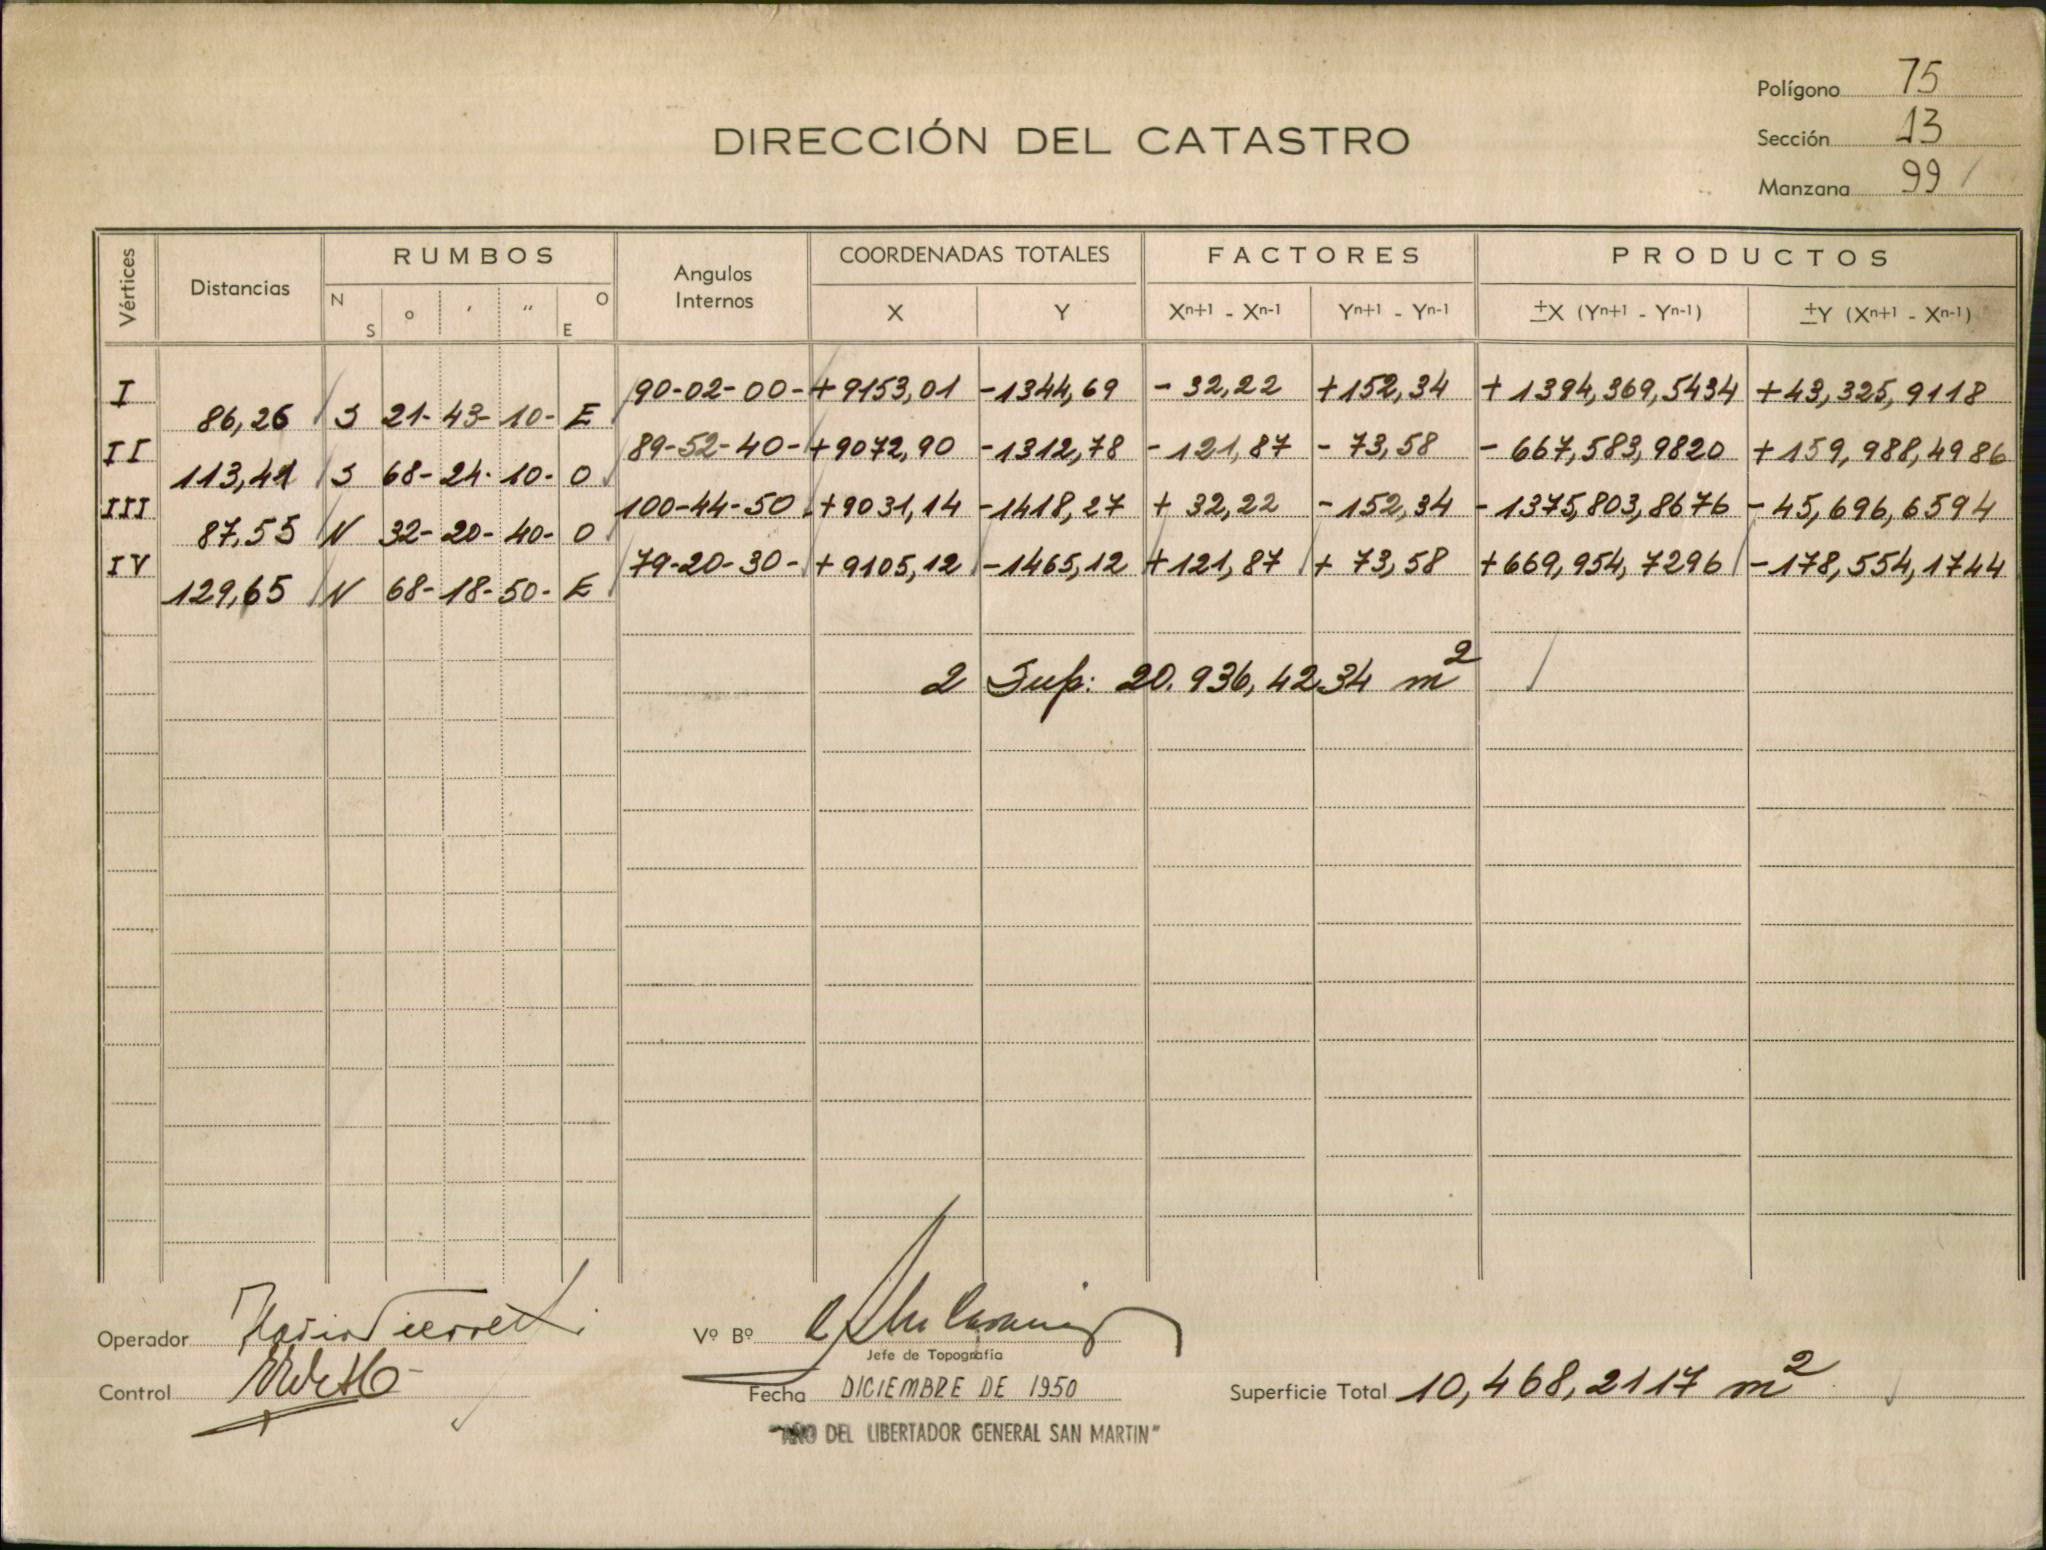 Polígono 75
Sección 13
Manzana 99
DIRECCIÓN DEL CATASTRO
Vértices Distancias RUMBOS Angulos Internos COORDENADAS TOTALES FACTORES PRODUCTOS
N S o ' " O E X Y Xn+1 - Xn-1 Yn+1 - Yn-1 ±X (Yn+1 - Yn-1) ±Y (Xn+1 - Xn-1)
I 90-02-00- +9153,01 -1344,69 - 32,22 +152,34 + 1394,369,5434 +43,325,9118
86,26 S 21- 43- 10- E
II 89-52-40- +9072,90 -1312,78 - 121,87 - 73,58 - 667,583,9820 +159,988,4986
113,41 S 68- 24- 10- O
III 100-44-50 +9031,14 -1418,27 + 32,22 -152,34 -1375,803,8676 -45,696,6594
87,55 N 32- 20- 40- O
IV 79-20-30- +9105,12 -1465,12 +121,87 + 73,58 +669,954,7296 -178,554,1744
129,65 N 68- 18- 50- E
2 Sup: 20.936,4234 m2
Operador
Control
Vº Bº
Jefe de Topografía
Fecha DICIEMBRE DE 1950
"AÑO DEL LIBERTADOR GENERAL SAN MARTIN"
Superficie Total 10,468,2117 m2